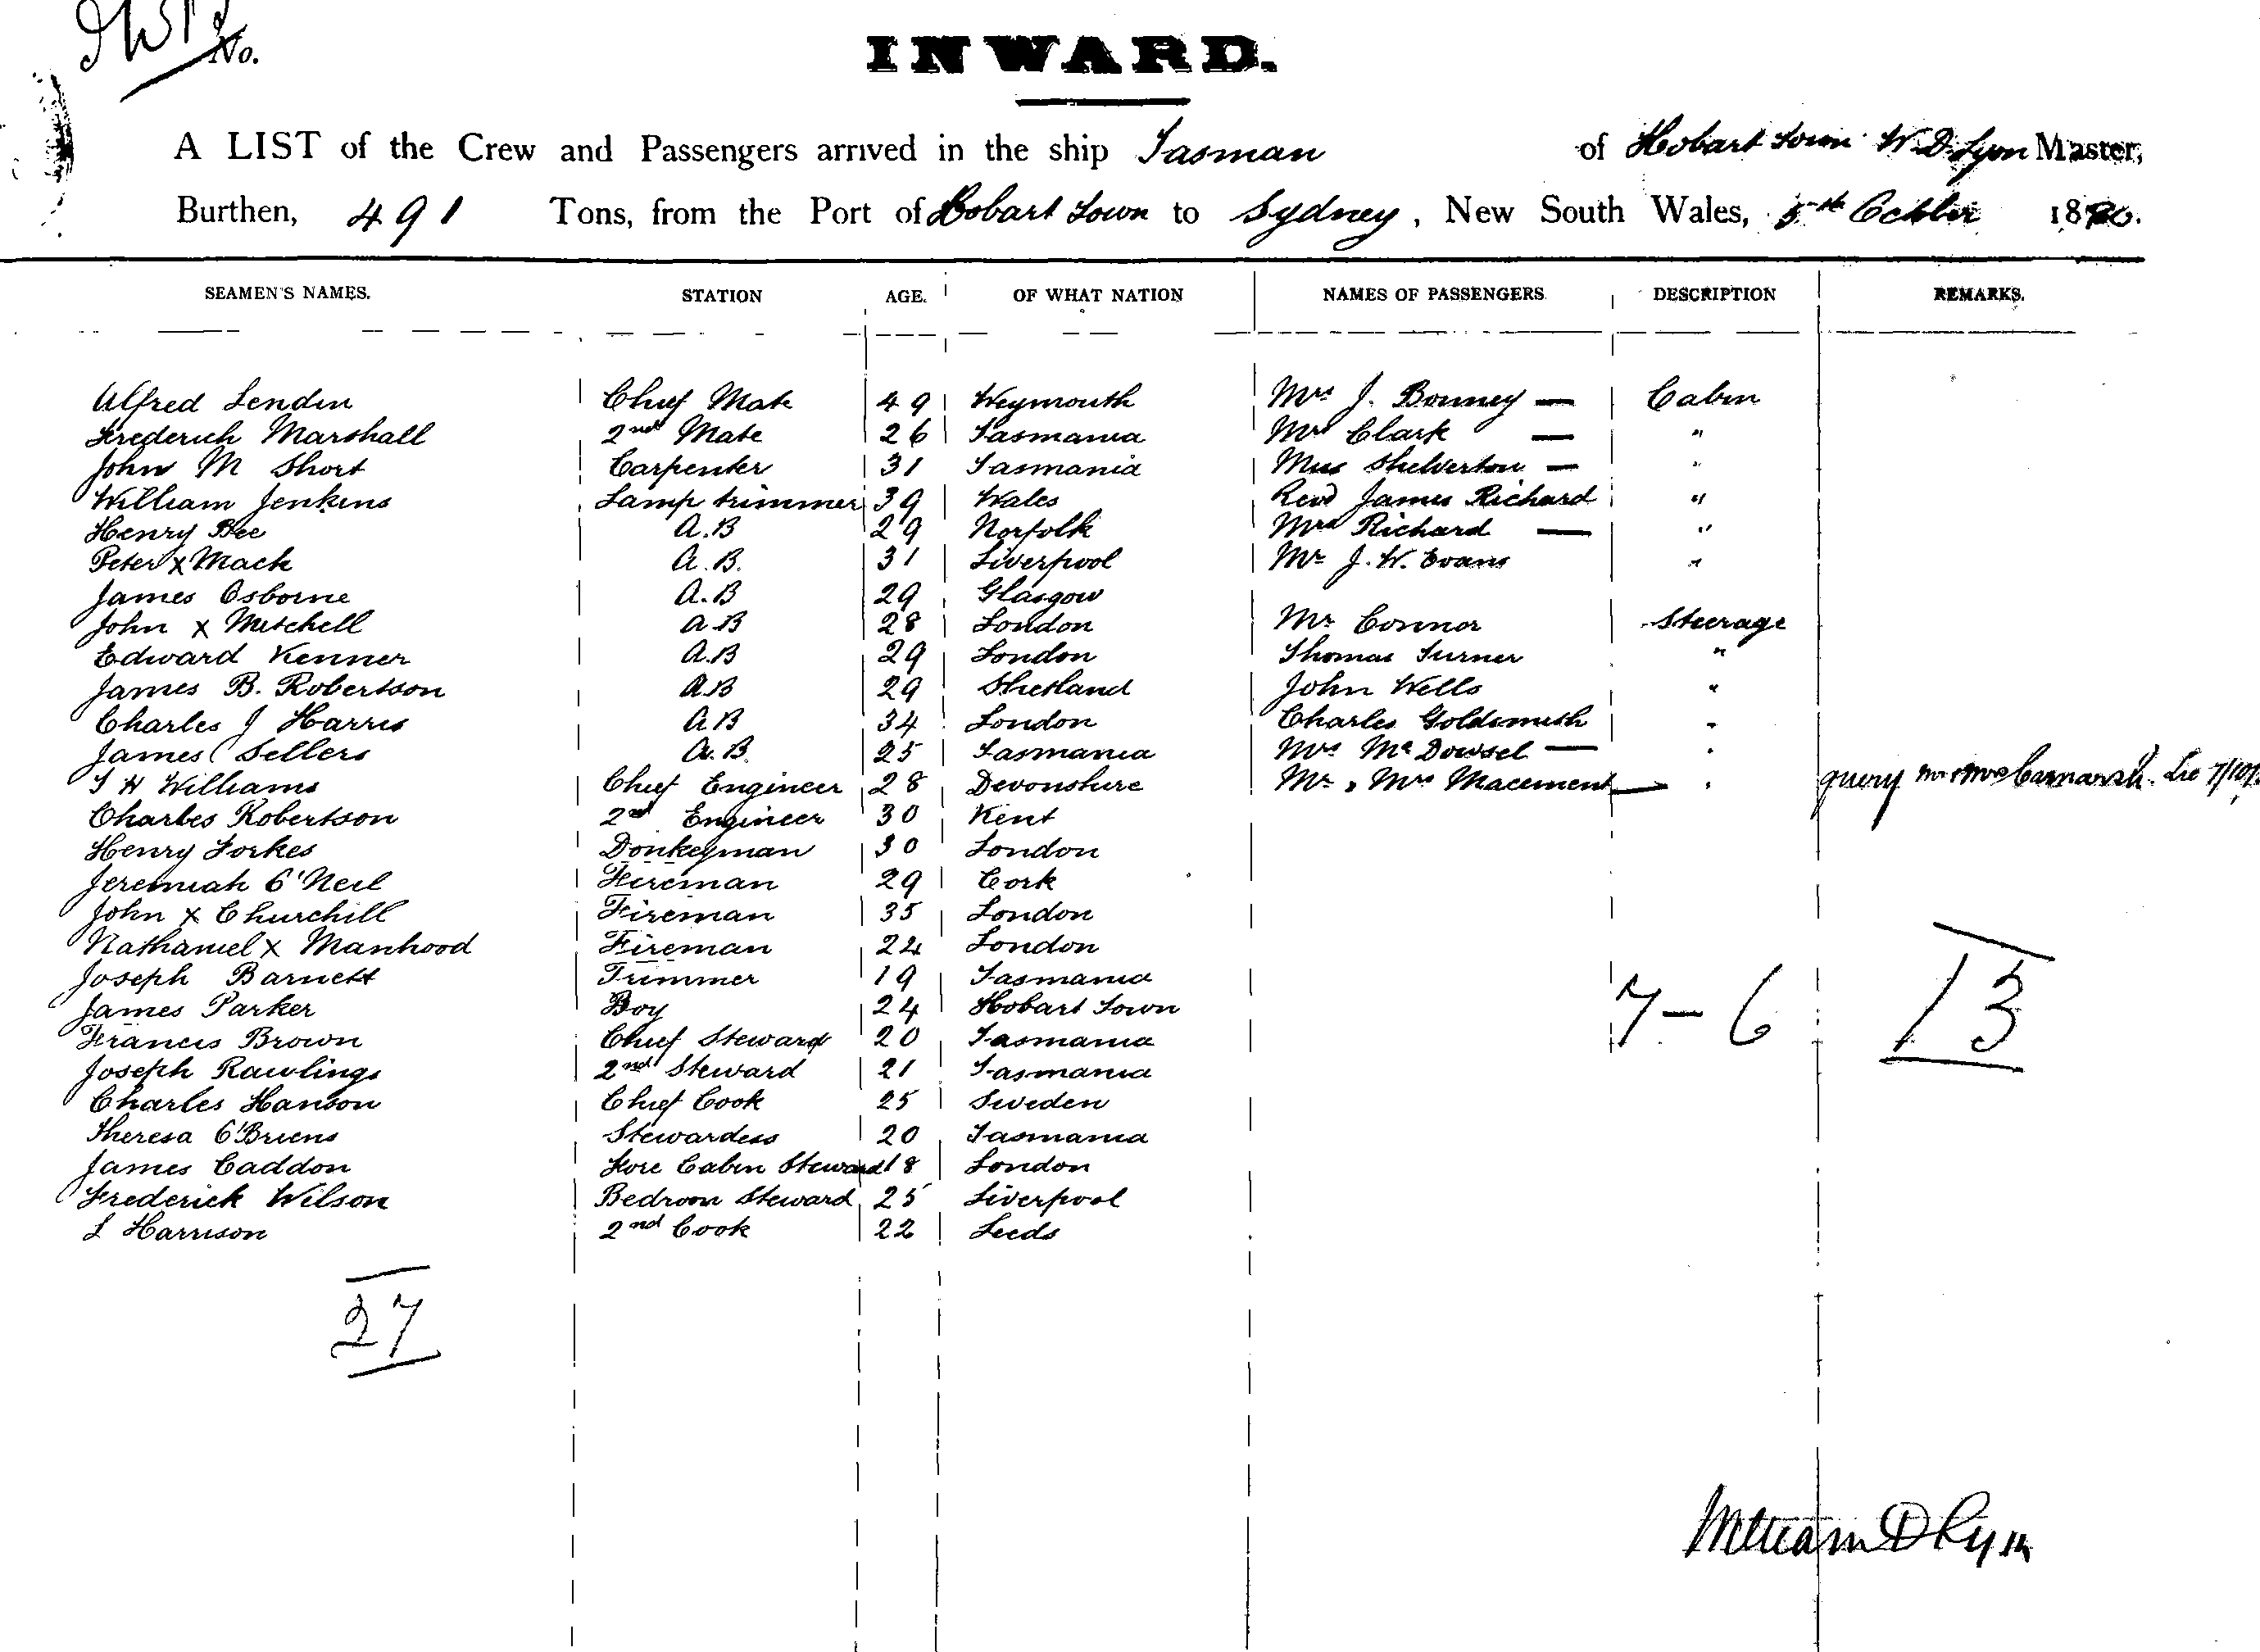 No.
INWARD.
A LIST of the Crew and Passengers arrived in the ship Tasman of Hobart Town W. D. Lyon Master,
Burthen, 491 Tons, from the Port of Hobart Town to Sydney, New South Wales, 5th October 1880.
SEAMEN'S NAMES. STATION AGE. OF WHAT NATION NAMES OF PASSENGERS. DESCRIPTION REMARKS.
Alfred Lendin Chief Mate 49 Weymouth Mrs J. Bonney — Cabin
Frederich Marshall 2nd Mate 26 Tasmania Mrs Clark — "
John M Short Carpenter 31 Tasmania Miss Shelverton — "
William Jenkins Lamp trimmer 39 Wales Revd James Richard "
Henry Bee A.B 29 Norfolk Mrs Richard — "
Peter x Mack A.B. 31 Liverpool Mr J. W. Evans "
James Osborne A.B 29 Glasgow
John x Mitchell A.B 28 London Mr Connor Steerage
Edward Kenner A.B 29 London Thomas Turner "
James B. Robertson A.B 29 Shetland John Wells "
Charles J Harris A.B 34 London Charles Goldsmith "
James Sellers A.B. 25 Tasmania Mrs McDowsel — "
T H Williams Chief Engineer 28 Devonshire Mr & Mrs Macement — " query Mr & Mrs
Charles Robertson 2nd Engineer 30 Kent
Henry Forkes Donkeyman 30 London
Jeremiah O'Neil Fireman 29 Cork
John x Churchill Fireman 35 London
Nathaniel x Manhood Fireman 24 London
Joseph Barnett Trimmer 19 Tasmania
James Parker Boy 24 Hobart Town
Francis Brown Chief Steward 20 Tasmania
7 – 6 13
Joseph Rawlings 2nd Steward 21 Tasmania
Charles Hanson Chief Cook 25 Sweden
Theresa O'Briens Stewardess 20 Tasmania
James Caddon Fore Cabin Steward 18 London
Frederick Wilson Bedroom Steward 25 Liverpool
L Harrison 2nd Cook 22 Leeds
27
William D Lyon